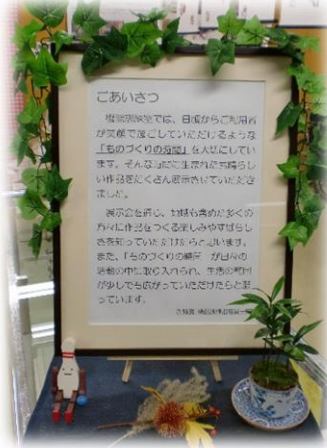 ごあいさつ
機能訓練室では、日頃からご利用者
が笑顔で過ごしていただけるような
「ものづくりの時間」を大切にしてい
ます。そんな時間に生まれた素晴らし
い作品をたくさん展示させていただき
ました。
展示会を通じ、地域も含めた多くの
方々に作品をつくる楽しみやすばらし
さを知っていただけたらと思います。
また、「ものづくりの時間」が日々の
活動の中に取り入れられ、生活の範囲
が少しでも広がっていただけたらと思
っています。